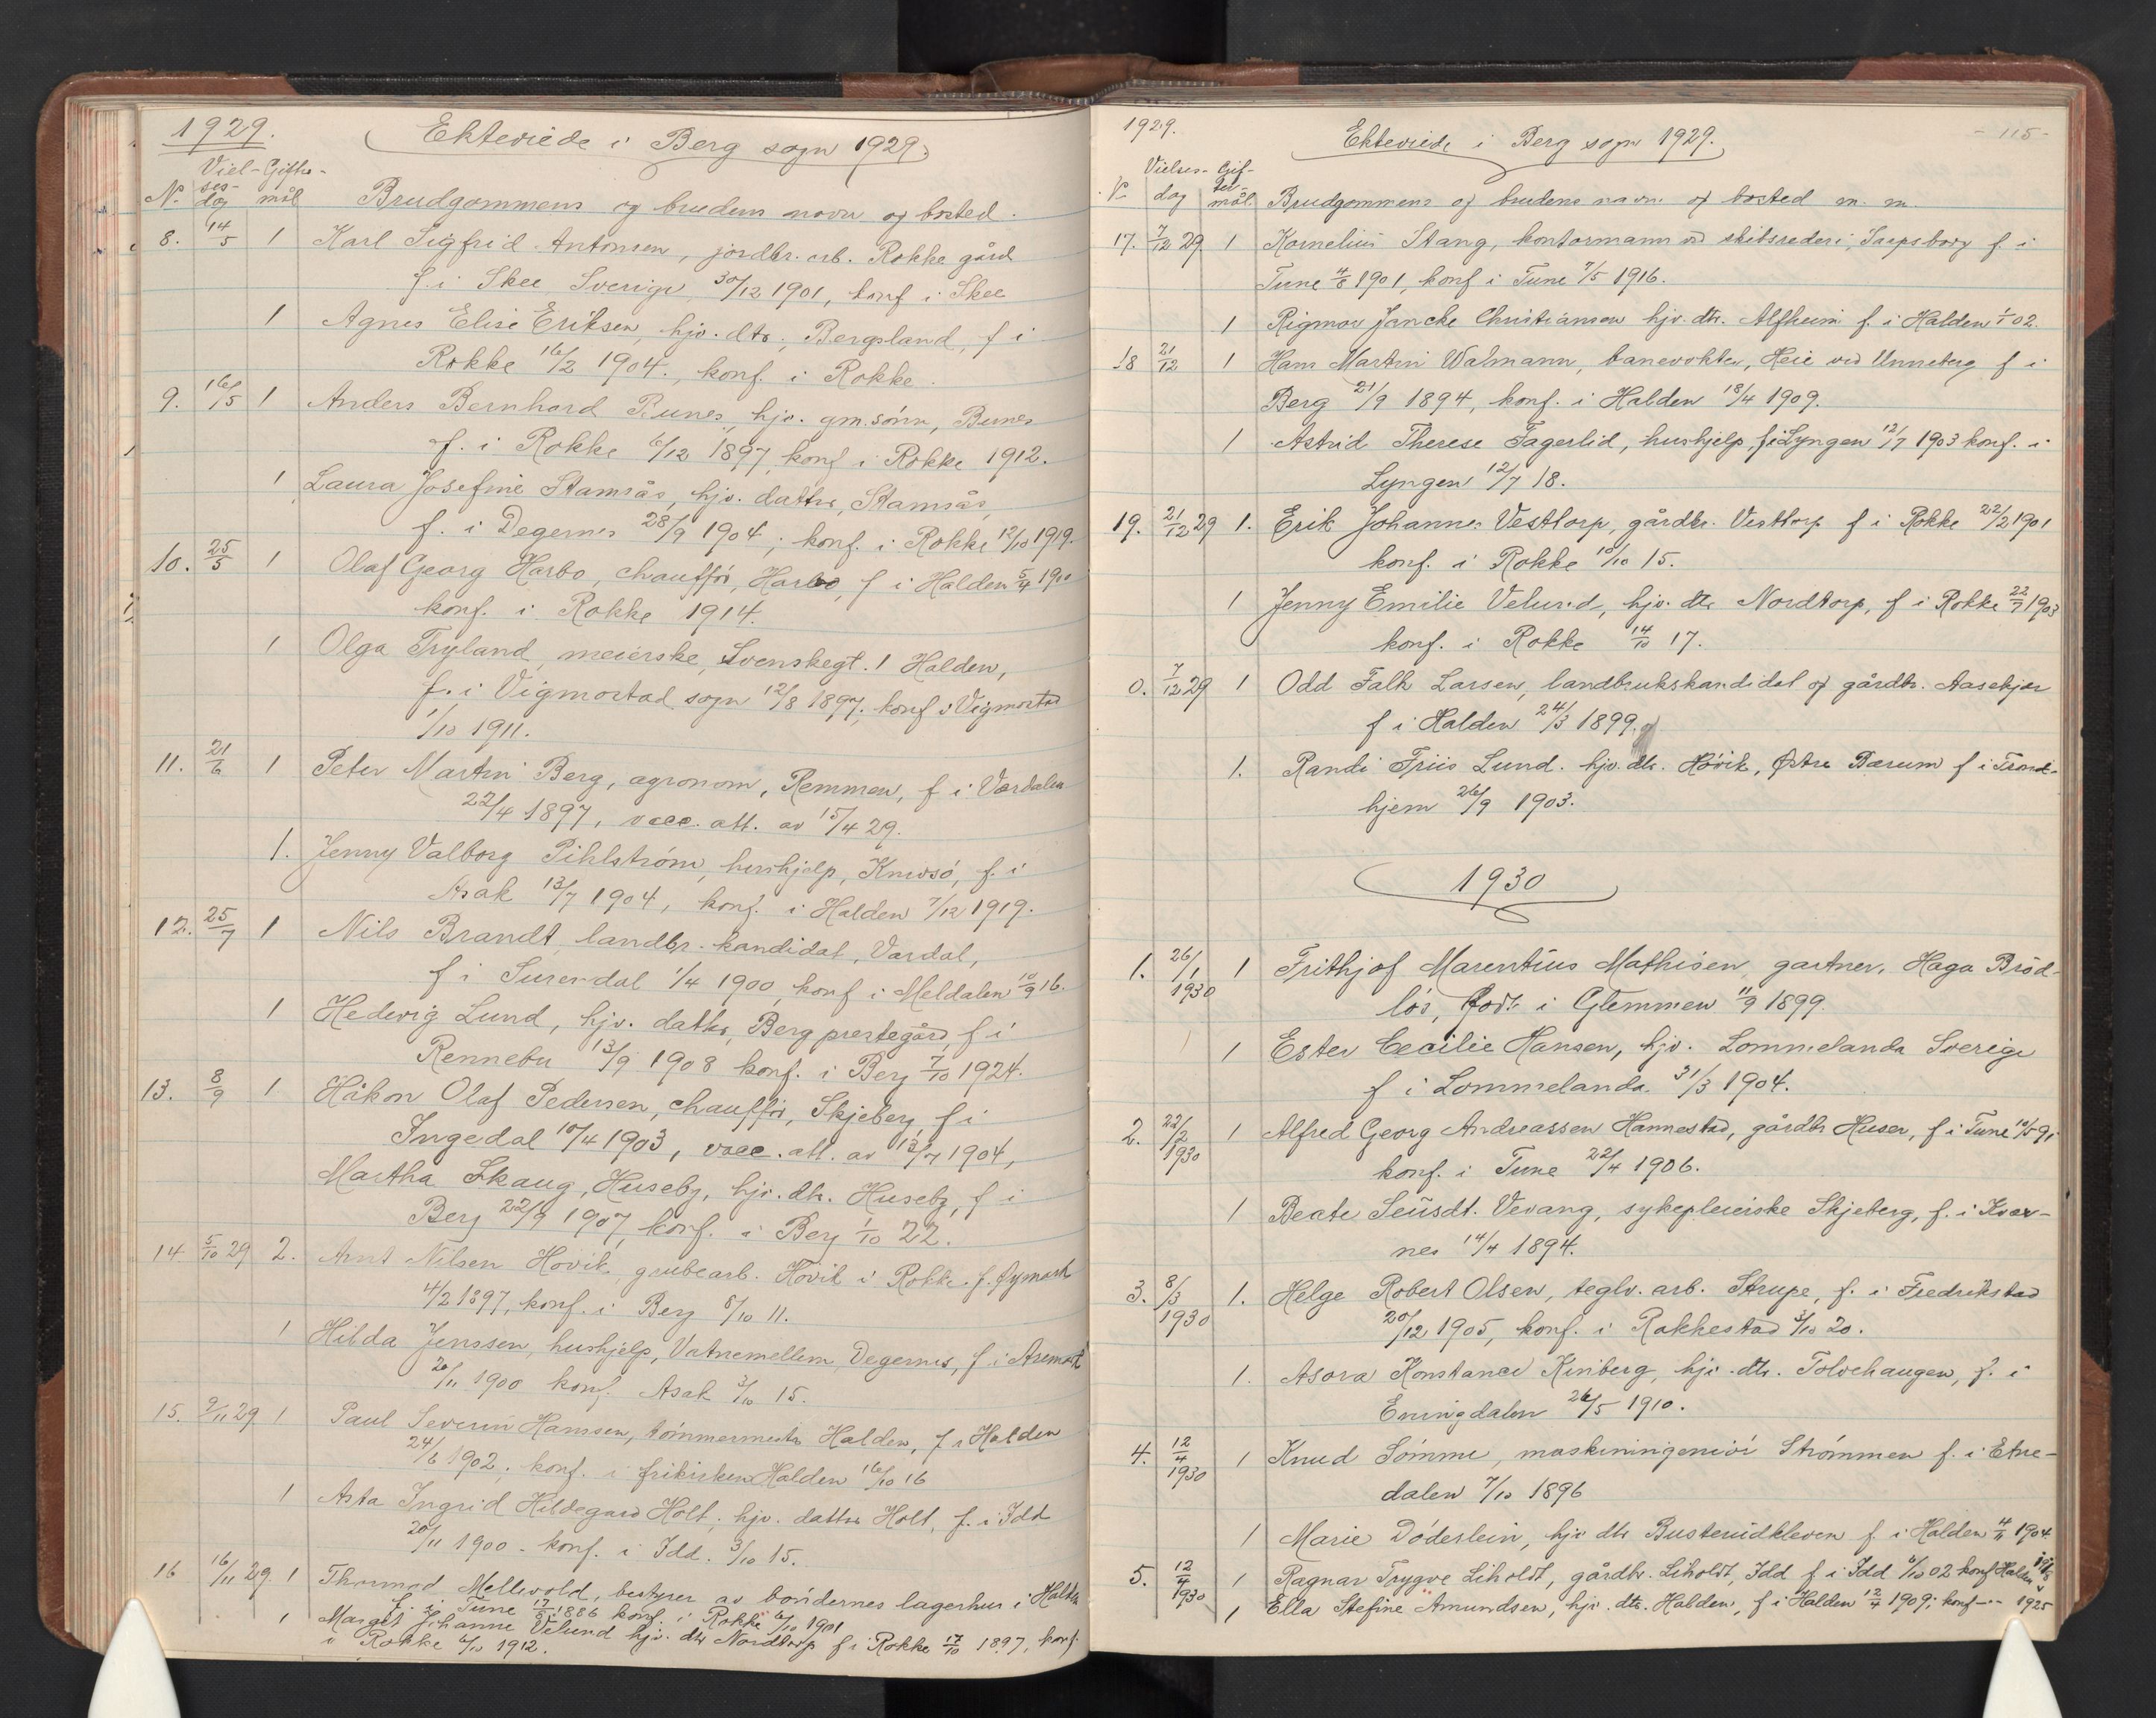 1929.
Ekteviede i Berg sogn 1929.
Viel- Gifter-
N. ses- dag mål Brudgommens og brudens navn og bosted.
8. 14/5 1 Karl Sigfrid Antonsen, jordbr. arb. Rokke gård
f. i Skee Sverige 30/12 1901, konf i Skee
1 Agnes Elise Eriksen, hjv. dtr., Bergsland, f i
Rokke 16/2 1904., konf. i Rokke.
9. 16/5 1 Anders Bernhard Bunes, hjv. gm.sønn, Bunes
f. i Rokke 6/12 1897, konf i Rokke 1912.
1 Laura Josefine Stamsås, hjv. datter, Stamsås,
f. i Degernes 28/9 1904, konf. i Rokke 12/10 1919.
10. 25/5 1 Olaf Georg Harbo, chauffør, Harbo, f i Halden 5/4 1900
konf. i Rokke 1914.
1 Olga Tryland, meierske, Svenskegt. 1 Halden,
f. i Vigmostad sogn 12/8 1897, konf i Vigmostad
1/10 1911.
11. 21/6 1 Peter Martin Berg, agronom, Remmen, f i Værdalen
22/4 1897, vacc. att. av 15/4 29.
1. Jenny Valborg Pihlstrøm, hushjelp, Knivsø, f. i
Asak 13/7 1904, konf. i Halden 7/12 1919.
12. 25/7 1 Nils Brandt, landbr. kandidat, Vardal,
f i Surendal 1/4 1900, konf i Meldalen 10/9 16.
1 Hedevig Lund, hjv. datter, Berg prestegård, f i
Rennebu 13/9 1908 konf. i Berg 7/10 1924.
13. 8/9 1 Håkon Olaf Pedersen, chauffør, Skjeberg, f i
Ingedal 10/4 1903, vacc. att. av 13/7 1904,
Martha Skaug, Huseby, hjv. dtr. Huseby, f i
Berg 22/9 1907, konf. i Berg 1/10 22.
14 5/10 29 2. Arnt Nilsen Hovik, grubearb. Hovik i Rokke. f. Øymark
4/2 1897, konf. i Berg 8/10 11.
1 Hilda Jenssen, hushjelp, Vatnemellem Degernes, f. i Aremark
20/11 1900 konf. Asak 3/10 15.
15. 9/11 29 1 Paul Severin Hanssen, tømmermestr Halden, f i Halden
24/6 1902, konf. i frikirken Halden 16/10 16
1 Asta Ingrid Hildegard Holt, hjv. datter Holt, f. i Idd
20/11 1900 - konf. i Idd. 3/10 15.
16 16/11 29. 1 Thormod Mellevold, bestyrer av bøndernes lagerhus i Halden
f. i Tune 17/8 1886 konf. i Rokke 6/10 1901
1 Margit Johanne Velund hjv. dtr Nordtorp f i Rokke 17/10 1897, konf.
i Rokke 6/10 1912.
1929.
Ekteviede i Berg sogn 1929.
- 115 -
Vielses- Gif-
N. dag ter- mål. Brudgommens og brudens navn og bosted m. m.
17. 7/12 29 1 Kornelius Stang, kontormann ved skibsrederi, Sarpsborg f. i
Tune 4/8 1901, konf i Tune 7/5 1916.
1 Rigmor Jencke Christiansen hjv. dtr. Alfheim f. i Halden 02.
18 21/12 1 Hans Martin Walmann, banevokter, Heie ved Unneberg f i
Berg 21/9 1894, konf. i Halden 18/4 1909.
1 Astrid Therese Fagerlid, hushjelp, f i Lyngen 12/7 1903 konf. i
Lyngen 12/7 18.
19. 21/12 29 1. Erik Johannes Vesttorp, gårdbr. Vesttorp f i Rokke 22/2 1901
konf. i Rokke 10/10 15.
1 Jenny Emilie Velund, hjv. dtr Nordtorp, f i Rokke 22/7 1903
konf. i Rokke 14/10 17.
0. 7/12 29 1 Odd Falk Larsen, landbrukskandidat og gårdbr. Aasekjær
f i Halden 24/3 1899.
1. Randi Friis Lund. hjv. dtr. Høvik, Østre Bærum f i Trond-
hjem 26/9 1903.
1930
1. 26/1 1930 1 Frithjof Marentius Mathisen, gartner, Haga Brød-
løs, født i Glemmen 11/9 1899.
1 Ester Cecilie Hansen, hjv. Lommelanda Sverige
f i Lommelanda 31/3 1904.
2. 22/2 1930 1 Alfred Georg Andreassen Hannestad, gårdbr Huser, f i Tune 10/5 91
konf. i Tune 22/4 1906.
1 Beate Vevang, sykepleierske Skjeberg, f. i Kvær-
nes 14/4 1894.
3. 8/3 1930 1. Helge Robert Olsen, teglv. arb. Strupe, f. i Fredrikstad
20/12 1905, konf. i Rakkestad 3/10 20.
1. Asora Konstance Kinberg, hjv. dtr. Tolvehaugen, f. i
Eningdalen 26/5 1910.
4. 12/4 1930 1 Knud Sømme, maskiningeniør Strømmen f. i Etne-
dalen 7/10 1896
1 Marie Døderlein, hjv dtr Busteruidkleven f i Halden 4/11 1904
5. 12/4 1930 1 Ragnar Trygve Liholdt, gårdbr. Liholdt, Idd f i Idd 6/10 02 konf Halden 1918
1 Ella Stefine Amundsen, hjv. dtr. Halden, f i Halden 12/4 1909, konf -"- 1925